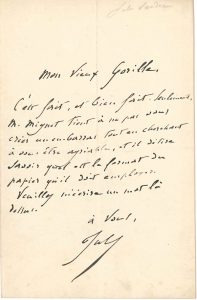 Mon vieux Gorille,
C'est fait, et bien fait. Seulement,
M. Mignet tient à ne pas vous
créer un embarras tout en cherchant
à vous être agréable, et il désire
savoir quel est le format du
papier qu'il doit employer.
Veuillez m'écrire un mot là
dessus.
à vous,